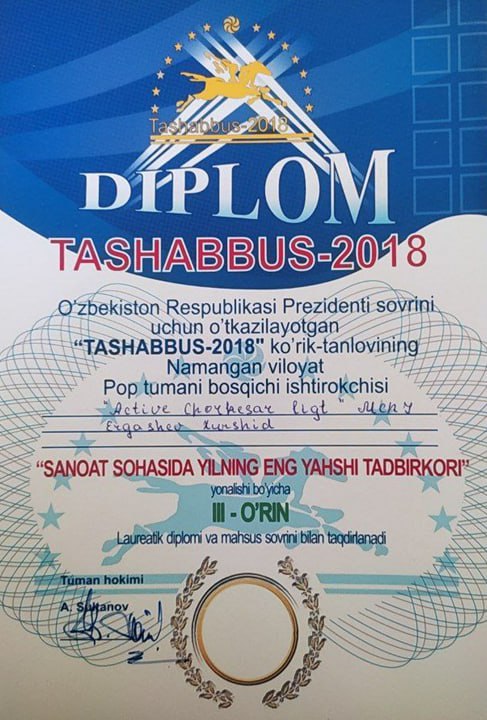 Tashabbus-2018
DIPLOM
TASHABBUS-2018
O'zbekiston Respublikasi Prezidenti sovrini
uchun o'tkazilayotgan
“TASHABBUS-2018" ko'rik-tanlovining
Namangan viloyat
Pop tumani bosqichi ishtirokchisi
"Active Chorkesar ligt" МСНJ
Ergashev Xurshid
“SANOAT SOHASIDA YILNING ENG YAHSHI TADBIRKORI”
yonalishi bo'yicha
III - O'RIN
Laureatik diplomi va mahsus sovrini bilan taqdirlanadi
Tuman hokimi
A. Sultanov